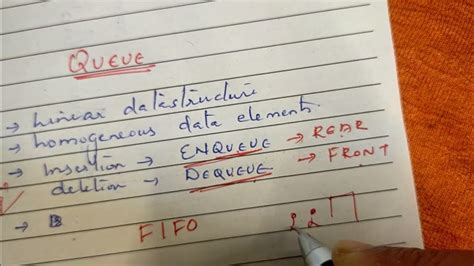 QUEUE
→ Linear datastructure
→ homogeneous data elements.
→ Insertion → ENQUEUE → REAR
deletion → DEQUEUE → FRONT
→ B
FIFO